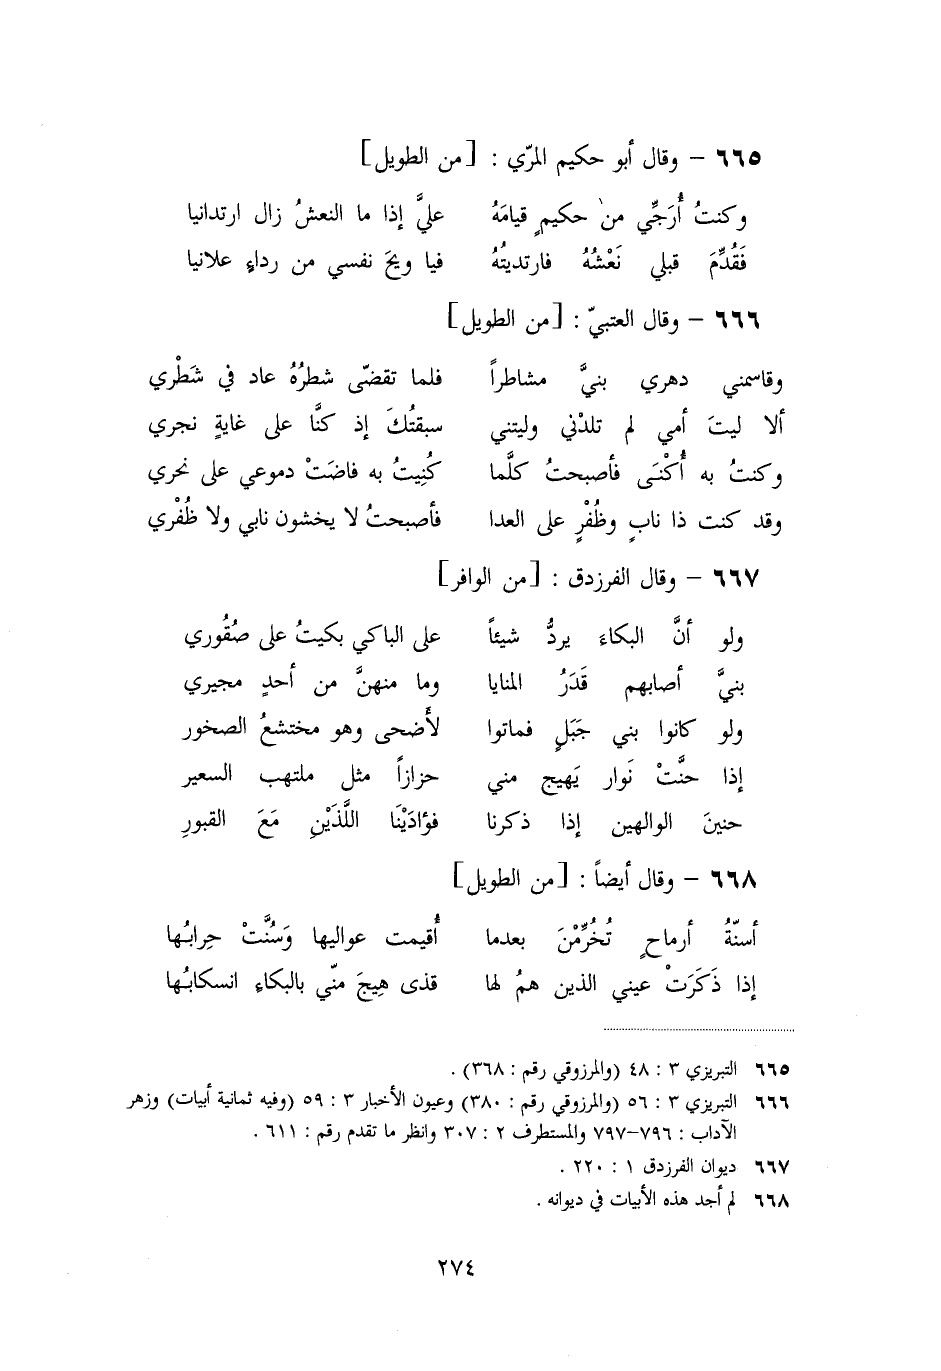 ٦٦٥ – وقال أبو حكيم المرّي : [من الطويل]
وكنتُ أُرَجِّي من حكيمٍ قيامَهُ عليَّ إذا ما النعشُ زال ارتدانيا
فَقُدِّمَ قبلي نَعْشُهُ فارتديتُهُ فيا ويحَ نفسي من رداءٍ علانيا
٦٦٦ – وقال العتبيّ : [من الطويل]
وقاسمني دهري بنيَّ مشاطراً فلما تقضّى شطرُهُ عاد في شَطْري
ألا ليتَ أمي لم تلدْني وليتني سبقتُكَ إذ كنَّا على غايةٍ نجري
وكنتُ به أُكْنَى فأصبحتُ كلَّما كُنِيتُ به فاضَتْ دموعي على نحري
وقد كنت ذا نابٍ وظُفْرٍ على العدا فأصبحتُ لا يخشون نابي ولا ظُفْري
٦٦٧ – وقال الفرزدق : [من الوافر]
ولو أنَّ البكاءَ يردُّ شيئاً على الباكي بكيتُ على صُقُوري
بنيَّ أصابهم قَدَرُ المنايا وما منهنَّ من أحدٍ مجيري
ولو كانوا بني جَبَلٍ فماتوا لأَضحى وهو مختشعُ الصخور
إذا حنَّتْ نَوار يَهيج مني حزازاً مثل ملتهب السعير
حنينَ الوالهين إذا ذكرنا فؤادَيْنَا اللَّذَيْنِ مَعَ القبورِ
٦٦٨ – وقال أيضاً : [من الطويل]
أسنّةُ أرماحٍ تُخُرِّمْنَ بعدما أُقيمت عواليها وَسُنَّتْ حِرابُها
إذا ذَكَرَتْ عيني الذين همُ لها قذى هِيجَ منّي بالبكاءِ انسكابُها
٦٦٥ التبريزي ٣ : ٤٨ (والمرزوقي رقم : ٣٦٨) .
٦٦٦ التبريزي ٣ : ٥٦ (والمرزوقي رقم : ٣٨٠) وعيون الأخبار ٣ : ٥٩ (وفيه ثمانية أبيات) وزهر
الآداب : ٧٩٦–٧٩٧ والمستطرف ٢ : ٣٠٧ وانظر ما تقدم رقم : ٦١١ .
٦٦٧ ديوان الفرزدق ١ : ٢٢٠ .
٦٦٨ لم أجد هذه الأبيات في ديوانه .
٢٧٤